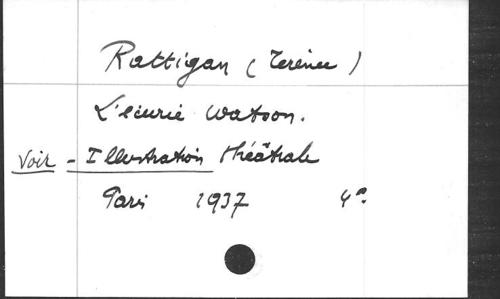 Rattigan (Terence)
L'écurie Watson.
Voir - Illustration théâtrale
Paris 1937 4°.